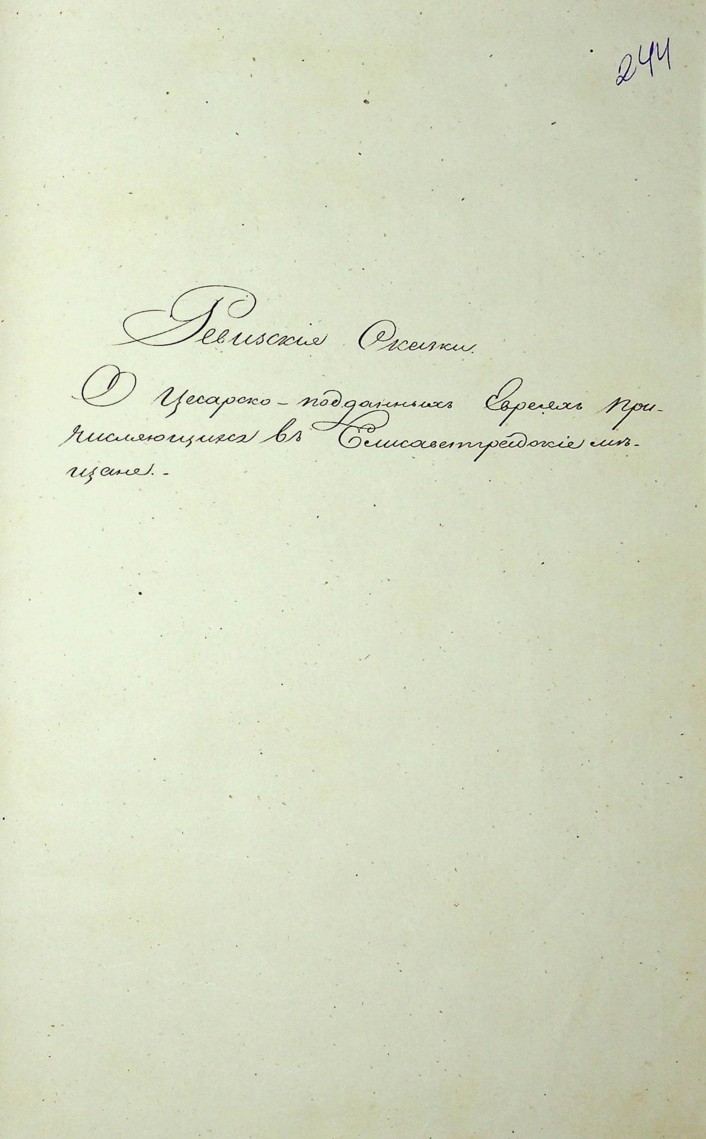 244
Ревизскія Сказки.
О Цесарско-подданныхъ Евреяхъ при-
числяющихся въ Елисаветградскіе мѣ-
щане.-